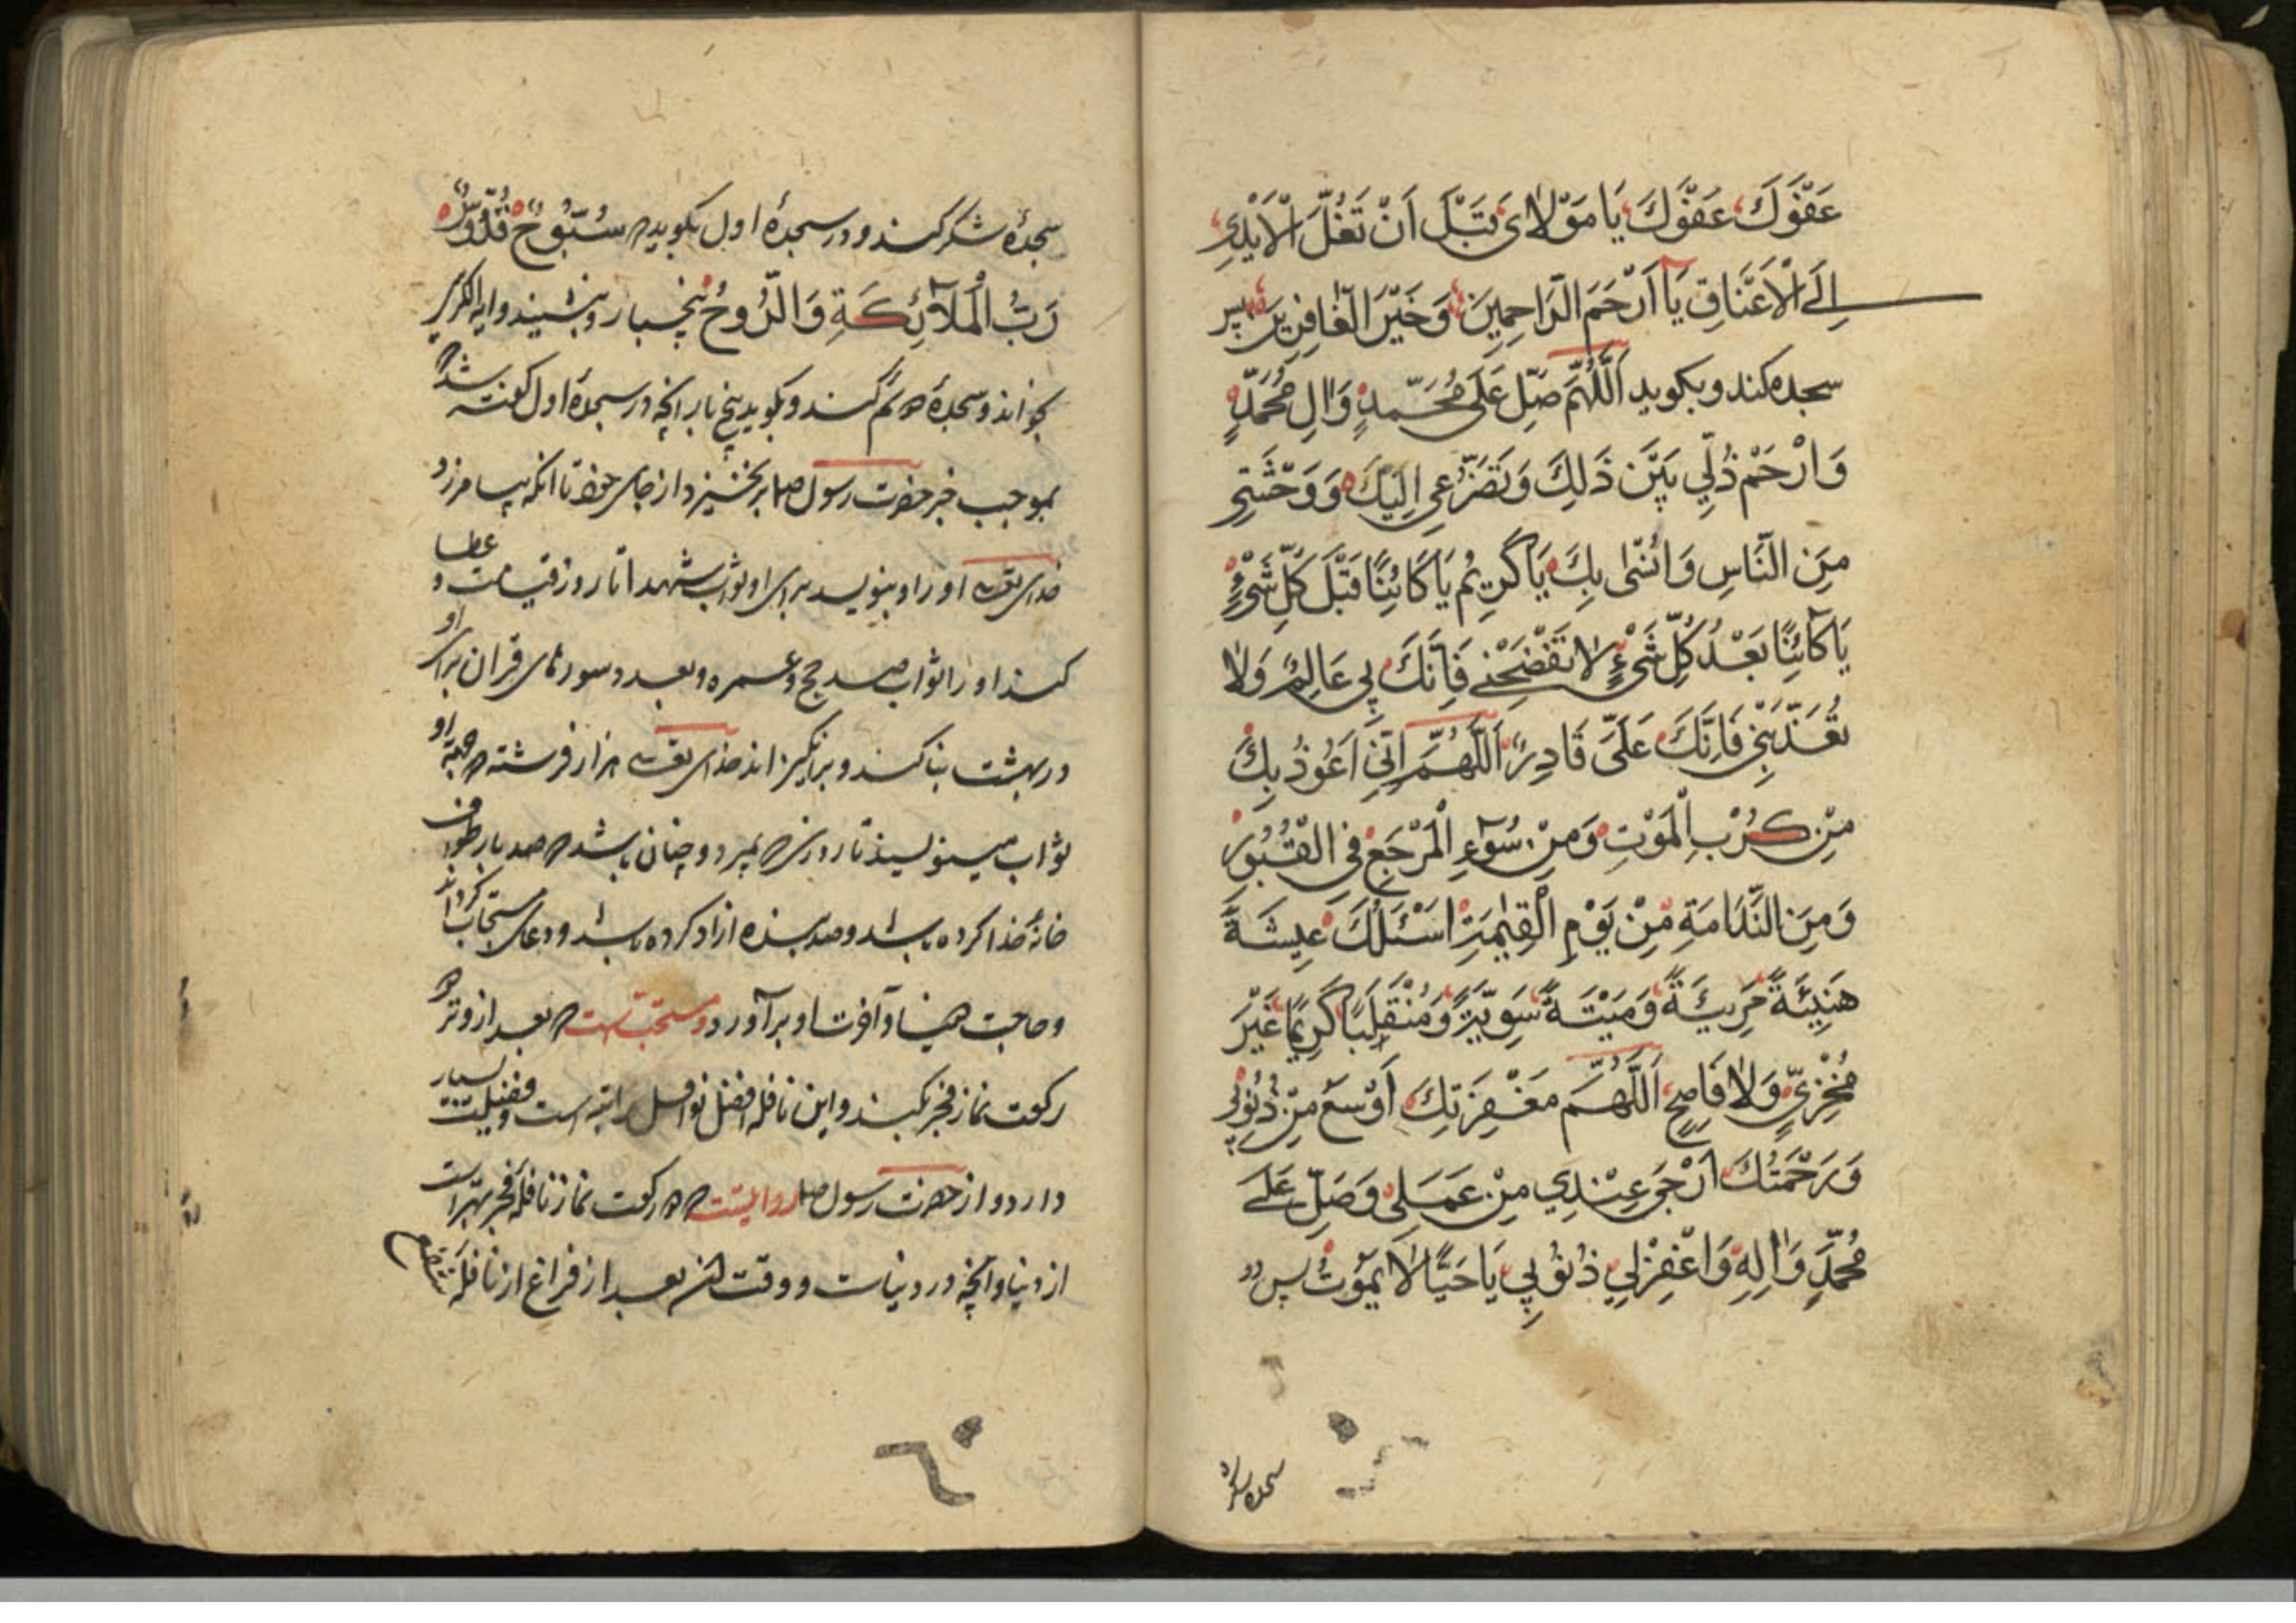 عَفْوَكَ عَفْوَكَ يَا مَوْلَايَ قَبْلَ اَنْ تَغُلَّ الْاَيْدِي
اِلَى الْاَعْنَاقِ يَا اَرْحَمَ الرَّاحِمِينَ وَخَيْرَ الْغَافِرِينَ پس
سجده کند و بکوید اَللّٰهُمَّ صَلِّ عَلَى مُحَمَّدٍ وَاٰلِ مُحَمَّدٍ
وَارْحَمْ ذُلِّي بَيْنَ ذَلِكَ وَتَضَرُّعِي اِلَيْكَ وَوَحْشَتِي
مِنَ النَّاسِ وَاُنْسِي بِكَ يَا كَرِيمُ يَا كَائِنًا قَبْلَ كُلِّ شَيْءٍ
يَا كَائِنًا بَعْدَ كُلِّ شَيْءٍ لَا تَفْضَحْنِي فَاِنَّكَ بِي عَالِمٌ وَلَا
تُعَذِّبْنِي فَاِنَّكَ عَلَيَّ قَادِرٌ اَللّٰهُمَّ اِنِّي اَعُوذُ بِكَ
مِنْ كَرْبِ الْمَوْتِ وَمِنْ سُوٓءِ الْمَرْجَعِ فِي الْقُبُورِ
وَمِنَ النَّدَامَةِ مِنْ يَوْمِ الْقِيٰمَةِ اَسْئَلُكَ عِيشَةً
هَنِيئَةً مَرِيئَةً وَمَيْتَةً سَوِيَّةً وَمُنْقَلَبًا كَرِيمًا غَيْرَ
مُخْزِيٍّ وَلَا فَاضِحٍ اَللّٰهُمَّ مَغْفِرَتِكَ اَوْسَعُ مِنْ ذُنُوبِي
وَرَحْمَتُكَ اَرْجَى عِنْدِي مِنْ عَمَلِي وَصَلِّ عَلَى
مُحَمَّدٍ وَاٰلِهِ وَاغْفِرْ لِي ذُنُوبِي يَا حَيًّا لَا يَمُوتُ پس دو
سجده شکر
سجدهٔ شکر کند و در سجدهٔ اول بکوید که سُبُّوحٌ قُدُّوسٌ
رَبُّ الْمَلآئِكَةِ وَالرُّوحُ پنج بار و بنشیند و ایه الکرسی
بخواند و سجدهٔ دوم کند و بکوید پنج بار انچه در سجدهٔ اول کفته شد
بموجب خبر حضرت رسول صلم برنخیزد از جای خود تا انکه بیامرزد
خدای تعالی او را و بنویسد برای او ثواب شهدا تا روز قیامت و عطا
کند او را ثواب صد حج و عمره و بعدد سورتهای قران برای او
در بهشت بنا کند و برانکیزاند خدای تعالی هزار فرشته که جهة او
ثواب مینویسند تا روزی که بمیرد و چنان باشد که صد بار طواف
خانهٔ خدا کرده باشد و صد بنده ازاد کرده باشد و دعای مستجاب کرداند
و حاجت دنیا و آخرت او برآورد و مستحبّ است که بعد از وتر دو
رکعت نماز فجر بکند و این نافله افضل نوافل راتبه است و فضیلت بسیار
دارد و از حضرت رسول صلم روایتست که دو رکعت نماز نافلهٔ فجر بهتر است
از دنیا و انچه در دنیاست و وقت این بعد از فراغ از نافلهٔ